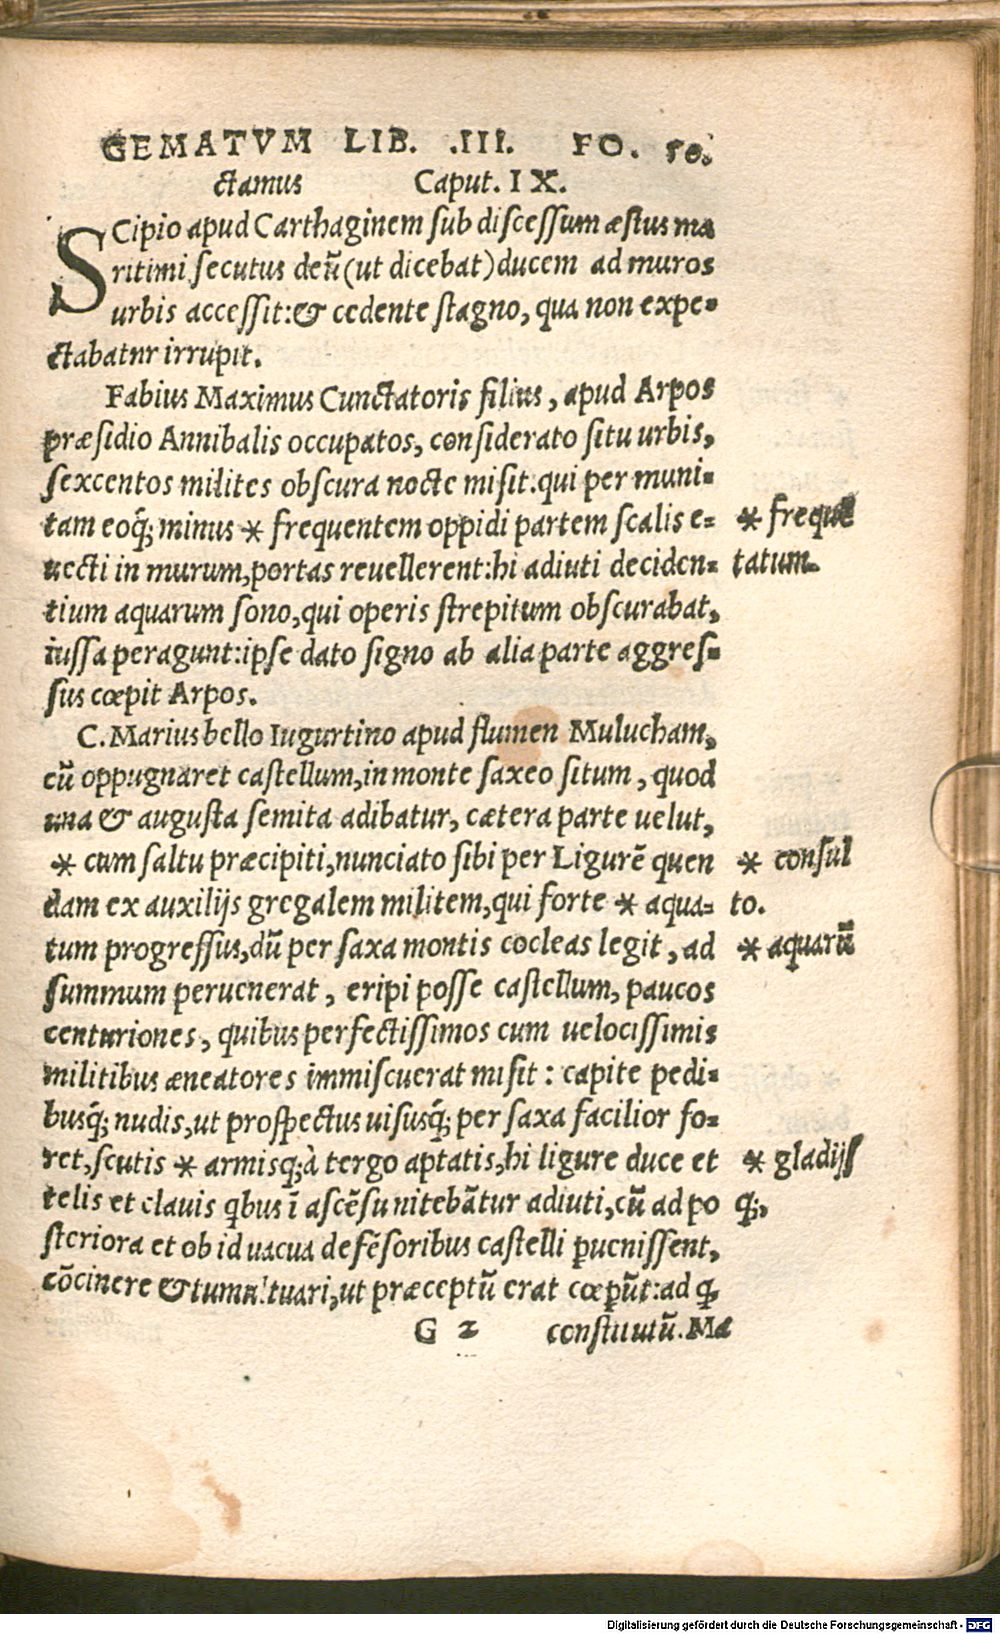 GEMATVM LIB. .III. FO. 50.
ctamus Caput. IX.
SCipio apud Carthaginem sub discessum æstus ma
ritimi secutus deũ (ut dicebat) ducem ad muros
urbis accessit: & cedente stagno, qua non expe-
ctabatnr irrupit.
Fabius Maximus Cunctatoris filius, apud Arpos
præsidio Annibalis occupatos, considerato situ urbis,
sexcentos milites obscura nocte misit. qui per muni-
tam eoq́; minus * frequentem oppidi partem scalis e-
* frequẽ
uecti in murum, portas reuellerent: hi adiuti deciden-
tatum.
tium aquarum sono, qui operis strepitum obscurabat,
iussa peragunt: ipse dato signo ab alia parte aggres-
sus cœpit Arpos.
C. Marius bello Iugurtino apud flumen Mulucham,
cũ oppugnaret castellum, in monte saxeo situm, quod
una & augusta semita adibatur, cætera parte uelut,
* cum saltu præcipiti, nunciato sibi per Ligurẽ quen
* consul
dam ex auxilijs gregalem militem, qui forte * aqua-
to.
tum progressus, dũ per saxa montis cocleas legit, ad
* aquarũ
summum peruenerat, eripi posse castellum, paucos
centuriones, quibus perfectissimos cum uelocissimis
militibus æneatores immiscuerat misit: capite pedi-
busq́; nudis, ut prospectus uisusq́; per saxa facilior fo-
ret, scutis * armisq́; à tergo aptatis, hi ligure duce et
* gladijs
telis et clauis q̃bus ĩ ascẽsu nitebãtur adiuti, cũ ad po
q́;,
steriora et ob id uacua defẽsoribus castelli ꝑuenissent,
cõcinere & tumultuari, ut præceptũ erat cœpũt: ad q̃
G 2 constitutũ. Ma
Digitalisierung gefördert durch die Deutsche Forschungsgemeinschaft - DFG